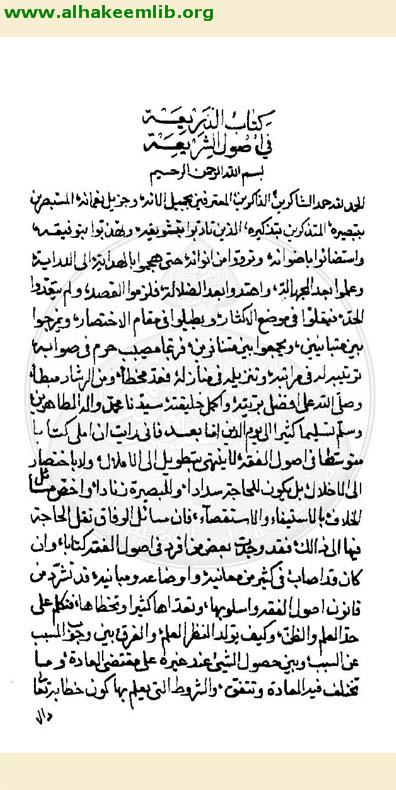 www.alhakeemlib.org
كتاب الذريعة
في اصول الشريعة
بسم الله الرحمن الرحيم
الحمد لله حمد الشاكرين الذاكرين المعترفين بجميل آلائه وجزيل نعمائه المستبصرين
بتبصيره المتذكرين بتذكيره الذين تأدبوا بتثقيفه وتهذبوا بتوفيقه
واستضاؤا باضوائه وترووا من انوائه حتى هجموا بالهداية الى الدراية
وعلموا بعد الجهالة واهتدوا بعد الضلالة فلزموا القصد ولم يتعدوا
الحد فيقلوا في موضع الاكثار ويطيلوا في مقام الاختصار ويمزجوا
بين متباينين ويجمعوا بين متنافرين فربما مصيب حرم في صوابه
ترتيبه له في مراتبه وتنزيله في منازله فعد مخطأ وعن الرشاد مبطأ
وصلى الله على افضل بريته واكمل خليقته سيدنا محمد وآله الطاهرين
وسلم تسليما كثيرا الى يوم الدين اما بعد فاني رايت ان املي كتابا
متوسطا في اصول الفقه لا ينتهي بتطويل الى الاملال ولا باختصار
الى الاخلال بل يكون للحاجة سدادا وللبصيرة زنادا واخص مسائل
الخلاف بالاستيفاء والاستقصاء فان مسائل الوفاق تقل الحاجة
فيها الى ذلك فقد وجدت بعض من افرد في اصول الفقه كتابا وان
كان قد اصاب في كثير من معانيه واوضاعه ومبانيه قد تشرد من
قانون اصول الفقه واسلوبها وتعداها كثيرا وتخطاها فتكلم على
حد العلم والظن وكيف يولد النظر العلم والفرق بين وجوب المسبب
عن السبب وبين حصول الشيء عند غيره على مقتضى العادة وما
تختلف فيه العادة وتتفق والشروط التي يعلم بها كون خطابه تعا